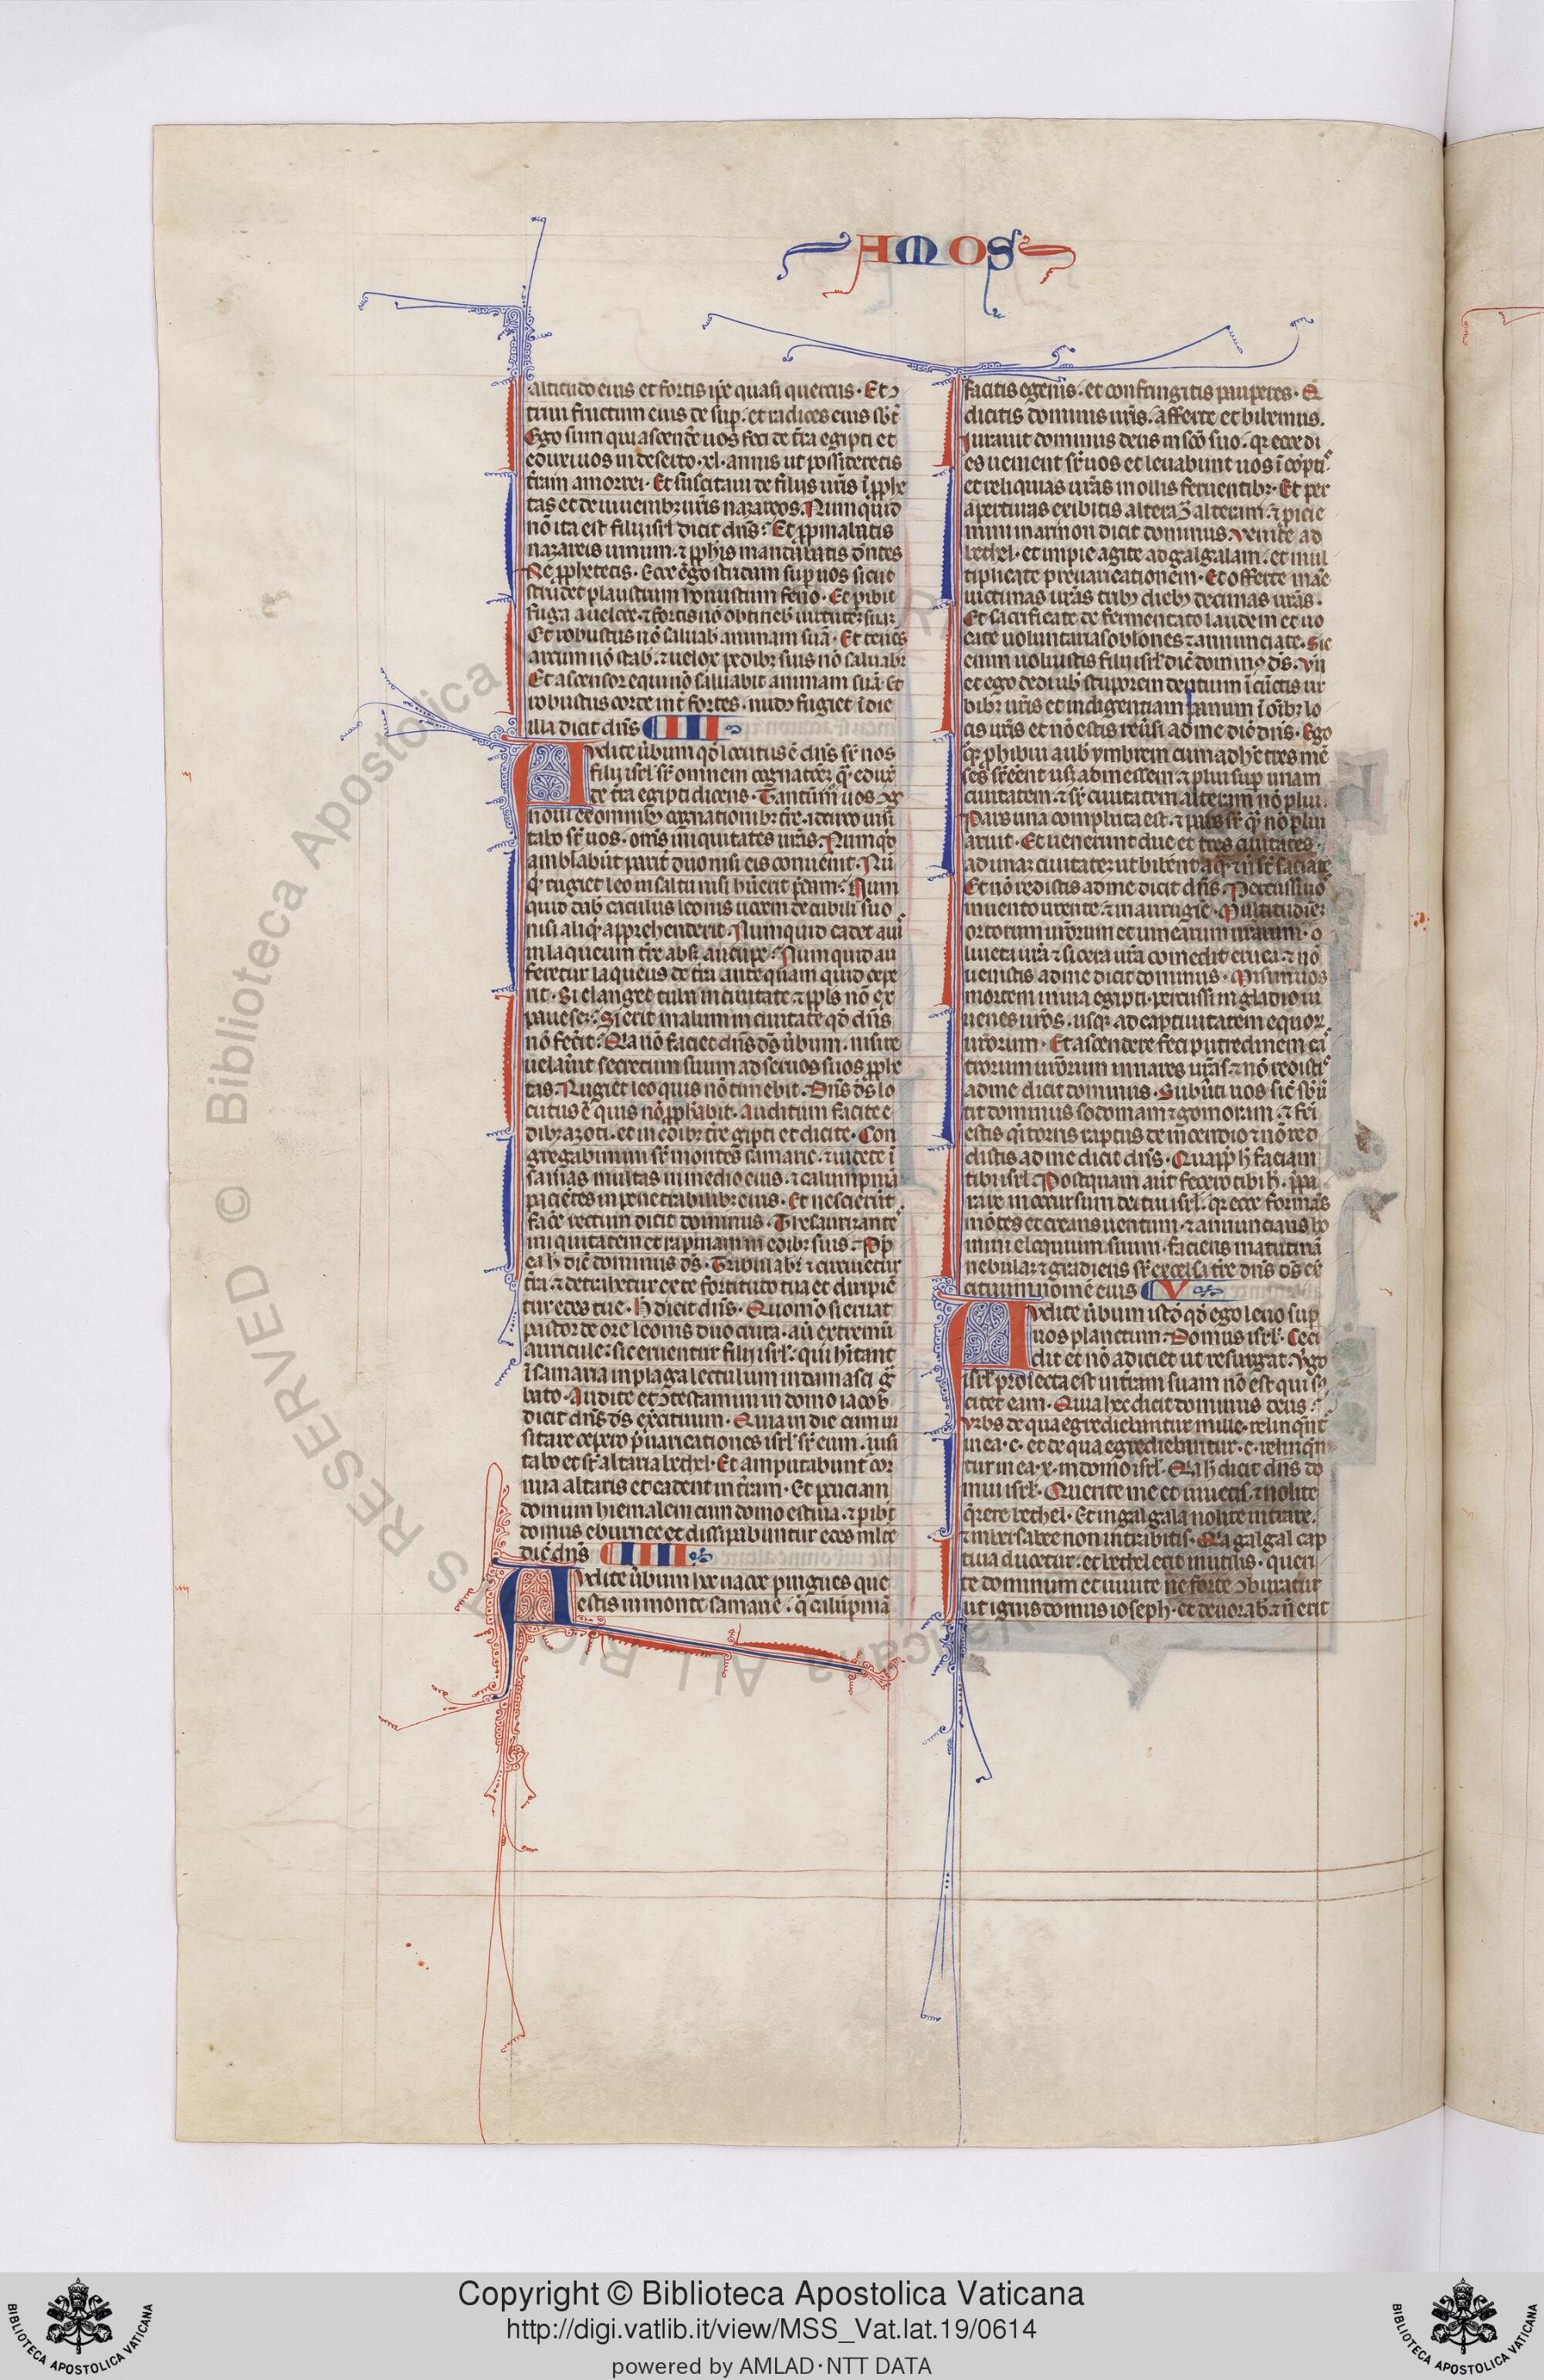 AMOS
altitudo eius et fortis ip̄e quasi quercus. Et ꝯ
triui fructum eius de sup̄. et radices eius sbt̄
Ego sum qui ascende uos feci de t̄ra egipti et
eduxi uos in deserto .xl. annis ut possideretis
t̄ram amorrei. Et suscitaui de filijs ur̄is ī ꝓphe
tas et de iuuenibꝫ ur̄is nazareos. Numquid
nō ita est filij isrl̄ dicit dn̄s.
nazareis uinum. ⁊ ꝓph̄is mandabatis d̄ntes
Ne ꝓphetetis. Ecce ego stridam sup̄ uos sicut
stridet plaustrum honustum feno. Et pibit
fuga a uelore. ⁊ fortis nō obtineb̄ uirtutē suā
Et robustus nō saluab̄ animam suā. Et tenēs
arcum nō stab̄. ⁊ uelox pedibꝫ suis nō saluabr̄
Et ascensor equi nō saluabit animam suā. Et
robustus corde int̄ fortes. nudꝰ fugiet ī die
illa dicit dn̄s III
Audite ūbum qd̄ locutus ē dn̄s sr̄ uos
filij isrl̄ sr̄ omnem cognatōeꝫ
de t̄ra egipti dicens. Tantūm uos
noui ex omnibꝫ cognationibꝫ t̄re. idcirco uisi
tabo sr̄ uos. om̄s iniquitates ur̄as. Numqd̄
amblabūt parit̄ duo nisi eis conuenit. Nū
quid dab̄ catulus leonis uocem de cubili suo
nisi aliqd̄ apprehenderit. Numquid cadet aui
in laqueum t̄re absꝫ aucupe. Numquid au
feretur laqueus de t̄ra ante quam quid cepe
rit. Si clanget tuba in ciuitate ⁊ ppl̄s nō ex
pauescet. Si erit malum in ciuitate qd̄ dn̄s
nō fecit. Q̄a nō faciet dn̄s ds̄ ūbum. nisi re
uelauit secretum suum ad seruos suos ꝓphe
tas. Rugiet leo quis nō timebit. Dn̄s ds̄ lo
cutus ē quis nō ꝓphabit. Auditum facite e
dibꝫ azoti. et in edibꝫ t̄re egipti et dicite. Con
gregabimini sr̄ montes samarie. ⁊ uidete ī
sanias multas in medio eius. ⁊ calumpniā
pacientes in penetrabilibꝫ eius. Et nescierūt
face rectum dicit dominus. Thesaurizante
iniquitatem et rapinam in edibꝫ suis. Pp̄
ea h̄ dic̄ dominus ds̄. Tribulabr̄ ⁊ circuietur
t̄ra. ⁊ detrahetur ex te fortitudo tua et diripiē
tur edes tue. h̄ dicit dn̄s. Quomō si eruat
pastor de ore leonis duo crura. aū extremū
auricule: sic eruentur filij isrl̄. qui hītant
ī samaria in plaga lectulum in damasci gͣ
bato. Audite et ꝯtestamini in domo iacob
dicit dn̄s ds̄ exercituum. Quia in die cum ui
sitare cepero p̄uaricationes isrl̄ sr̄ eum. uisi
tabo et sr̄ altaria bethel. Et amputabunt cor
nua altaris et cadent in t̄ram. Et pcuciam
domum hiemalem cum domo estiua. ⁊ pibt̄
domus eburnee et dissipabuntur edes mlte
dic̄ dn̄s IIII
Audite ūbum hoc uacce pingues que
estis in monte samarie. q̄ calūpniā
facitis egenis. et confringitis pauperes. Q̄
dicitis dominis ur̄is. afferte et bibemus.
Iurauit dominus deus in sc̄o suo. qꝛ ecce di
es uenient sr̄ uos et leuabunt uos ī cōpti
et reliquias ur̄as in ollis feruentibꝫ. Et per
aperturas exibitis altera ꝯ̄ alteram. ⁊ picie
mini
bethel. et impie agite ad galgalam. et mul
tiplicate preuaricationem. Et offerte mane
uictimas ur̄as tribꝫ diebꝫ decimas ur̄as.
Et sacrificate de fermentato laudem et uo
cate uoluntarias oblōnes ⁊ annunciate. Sic
enim uoluistis filij isrl̄ dic̄ dominꝰ ds̄. Vn̄
et ego dedi uob̄ stuporem dentium ī cūctis ur
bibꝫ ur̄is et indigentiam panum ī om̄ibꝫ lo
cis ur̄is et nō estis reūsi ad me dic̄ dn̄s. Ego
qꝫ phibui a uob̄ ymbrem cum adhuc tres mē
ses superēent usꝫ ad messem. ⁊ plui sup̄ unam
ciuitatem. ⁊ sr̄ ciuitatem alteram nō plui.
Pars una compluta est. ⁊ pars sr̄ qͣ nō plui
aruit. Et uenerunt due et tres ciuitates
ad unaꝫ ciuitateꝫ ut bibent
Et nō redistis ad me dicit dn̄s. Percussi uo
in uento urente. ⁊ in aurugine. Multitudineꝫ
ortorum ur̄orum et uinearum ur̄arum. o
liueta ur̄a ⁊ ficeta ur̄a comedit eruca. ⁊ nō
uenistis ad me dicit dominus. Misi in uos
mortem in uia egipti. percussi in gladio iu
uenes ur̄os. usqꝫ ad captiuitatem equor
ur̄orum. Et ascendere feci putredinem ca
trorum ur̄orum in nares ur̄as. ⁊ nō redistis
ad me dicit dominus. Subūti uos sic̄ sbū
tit dominus sodomam ⁊ gomorram. ⁊ fc̄i
estis qͥ torris raptus de incendio ⁊ nō re d
distis ad me dicit dn̄s. Quapp̄ h̄ faciam
tibi isrl̄. Postquam aut̄ fecero tibi h̄. p̄pa
rare in occursum dei tui isrl̄. qꝛ ecce formās
mōtes et creans uentum. ⁊ annuncians ho
mini eloquium suum. faciens matutinā
nebulaꝫ ⁊ gradiens sr̄ excelsa t̄re dn̄s ds̄ ex̄
cituum nomē eius V
Audite ūbum istd̄ qd̄ ego leuo sup
uos planctum. Domus isrl̄. Ceci
dit et nō adiciet ut resurgat. Vgo
isrl̄ proiecta est in t̄ram suam nō est qui su
citet eam. Quia hec dicit dominus deus.
Vrbs de qua egrediebantur mille. relinqn̄t
in ea .c. et de qua egrediebantur .c. relinqn̄
tur in ea .x. in domo isrl̄. Q̄a h̄ dicit dn̄s do
mui isrl̄. Querite me et uiuetis. ⁊ nolite
q̄rere bethel. Et in galgala nolite intrare.
⁊ in bersabee non intrabitis. Q̄a galgal cap
tiua ducetur. et bethel erit inutilis. queri
te dominum et uiuite ne forte ꝯburatur
ut ignis domus ioseph. et deuorab̄. ⁊ n̄ erit
© Biblioteca Apostolica Vaticana ALL RIGHTS RESERVED
Copyright © Biblioteca Apostolica Vaticana
http://digi.vatlib.it/view/MSS_Vat.lat.19/0614
powered by AMLAD·NTT DATA
BIBLIOTECA APOSTOLICA VATICANA
BIBLIOTECA APOSTOLICA VATICANA